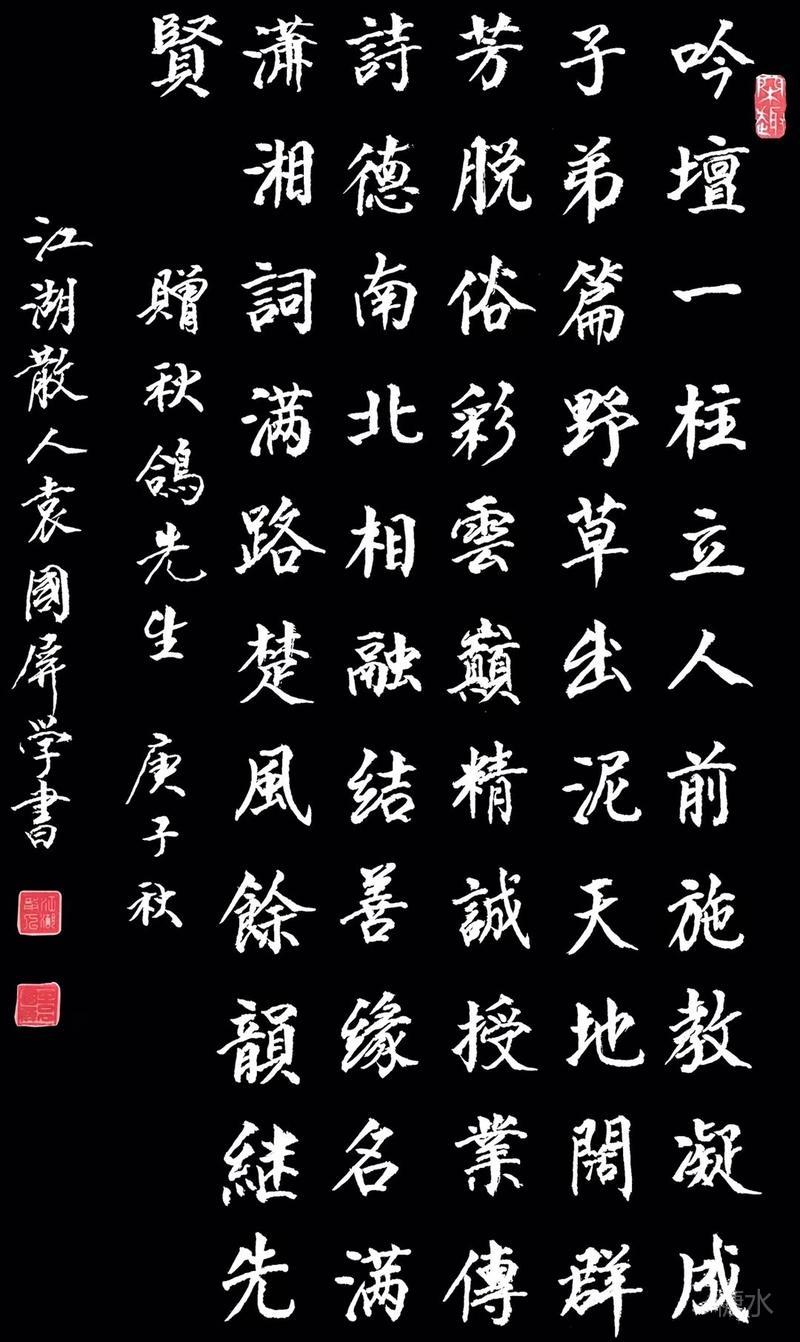 吟壇一柱立人前施教凝成
子弟篇野草出泥天地闊群
芳脱俗彩雲巔精誠授業傳
詩德南北相融結善缘名满
瀟湘詞满路楚風餘韻继先
賢
贈秋鴿先生 庚子秋
江湖散人袁國屏学書